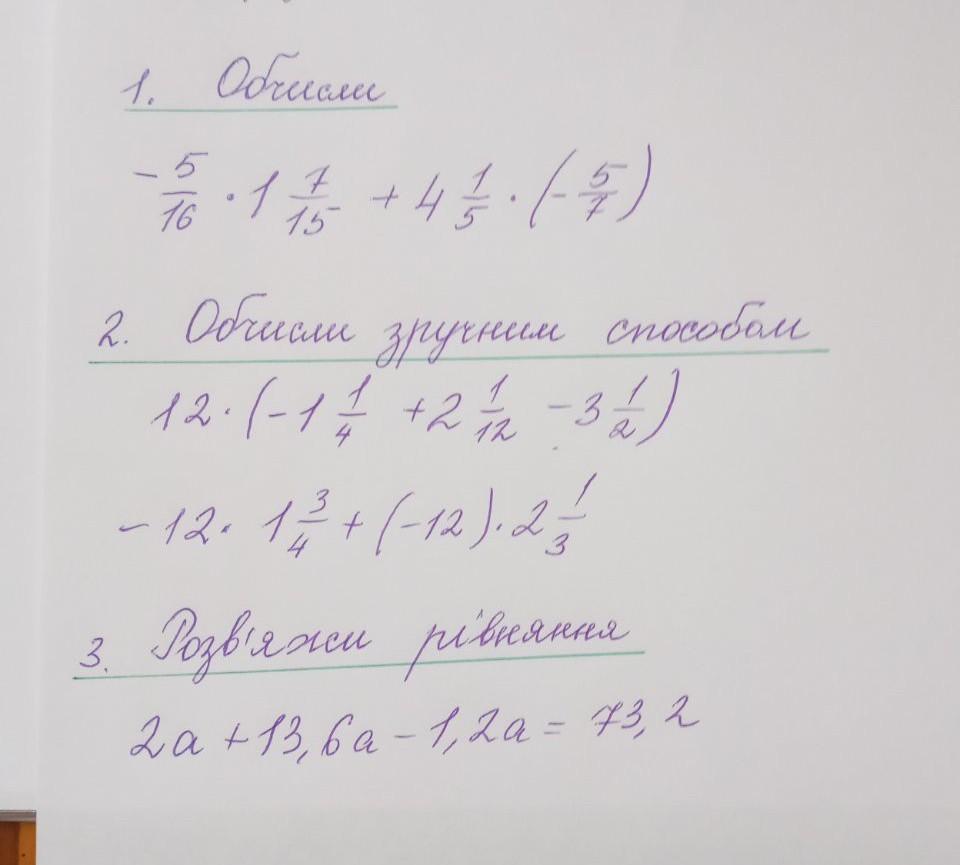 1. Обчисли
- 5/16 · 1 7/15 + 4 1/5 · (- 5/7)
2. Обчисли зручним способом
12 · (-1 1/4 + 2 1/12 - 3 1/2)
-12 · 1 3/4 + (-12) · 2 1/3
3. Розв'яжи рівняння
2a + 13,6a - 1,2a = 73,2